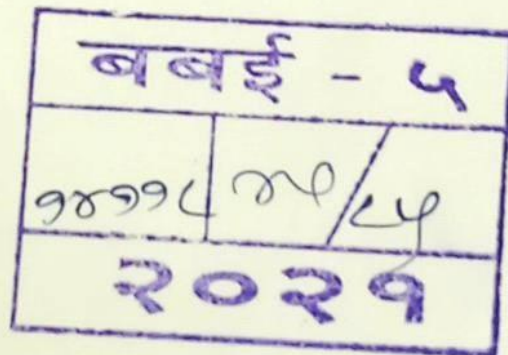 बबई - ५
१४११८ ४५/८५
२०२१